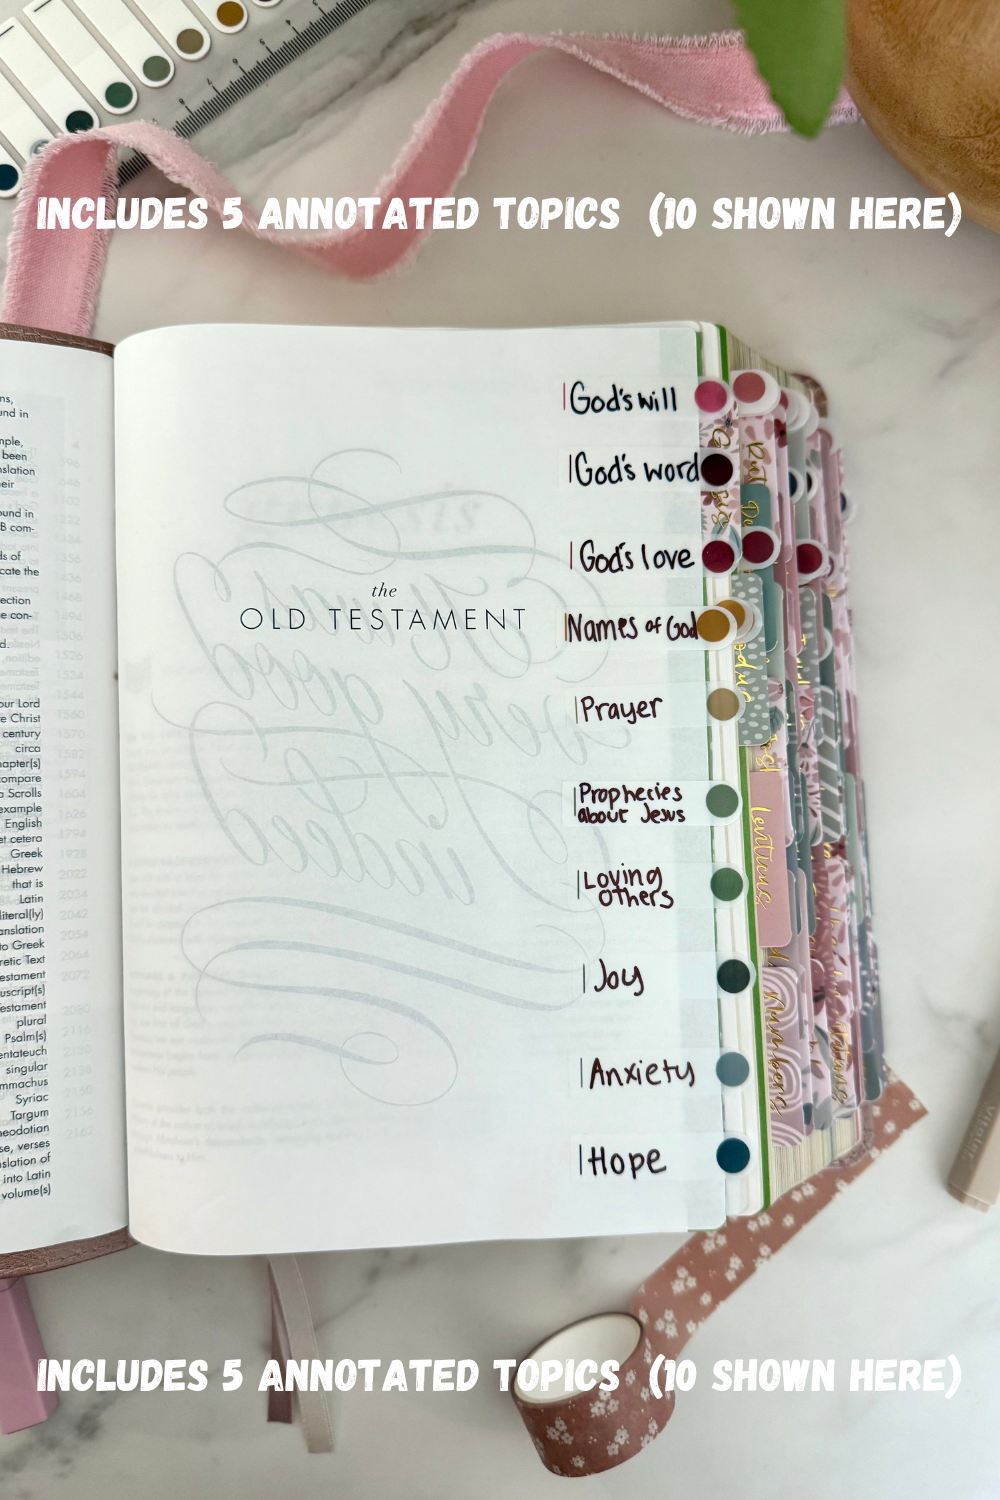 INCLUDES 5 ANNOTATED TOPICS (10 SHOWN HERE)
God's will
God's word
God's love
the
OLD TESTAMENT
Names of God
Prayer
Prophecies
about Jesus
Loving
Others
Joy
Anxiety
Hope
Leviticus
Numbers
und in
been
slation
ound in
B com-
ds of
cate the
ection
e con-
d.
our Lord
e Christ
century
circa
hapter(s)
compare
Scrolls
example
English
et cetera
Greek
Hebrew
that is
Latin
literal(ly)
anslation
to Greek
retic Text
estament
uscript(s)
estament
plural
Psalm(s)
entateuch
singular
mmachus
Syriac
Targum
heodotian
se, verses
slation of
into Latin
volume(s)
INCLUDES 5 ANNOTATED TOPICS (10 SHOWN HERE)